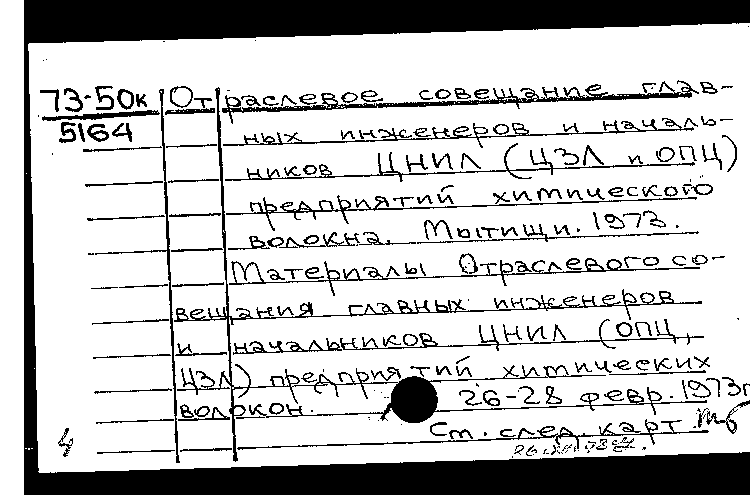 73-50к Отраслевое совещание глав-
5164 ных инженеров и началь-
ников ЦНИЛ (ЦЗЛ и ОПЦ)
предприятий химического
волокна. Мытищи. 1973.
Материалы Отраслевого со-
вещания главных инженеров
и начальников ЦНИЛ (ОПЦ,
ЦЗЛ) предприятий химических
волокон. 26-28 февр. 1973г
См. след. карт.
4